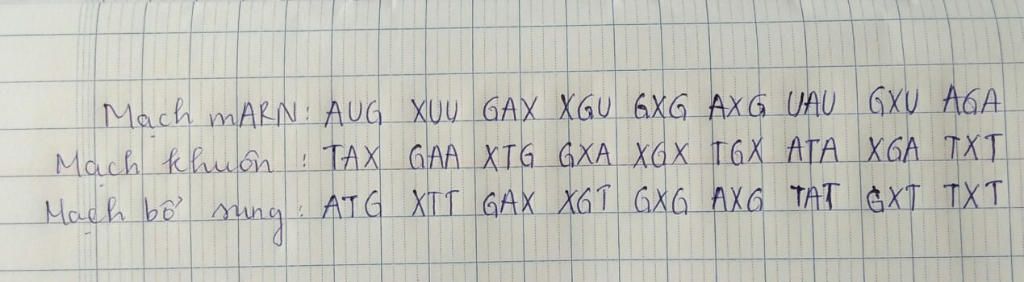 Mạch mARN: AUG XUU GAX XGU GXG AXG UAU GXU AGA
Mạch khuôn: TAX GAA XTG GXA XGX TGX ATA XGA TXT
Mạch bổ sung: ATG XTT GAX XGT GXG AXG TAT GXT TXT